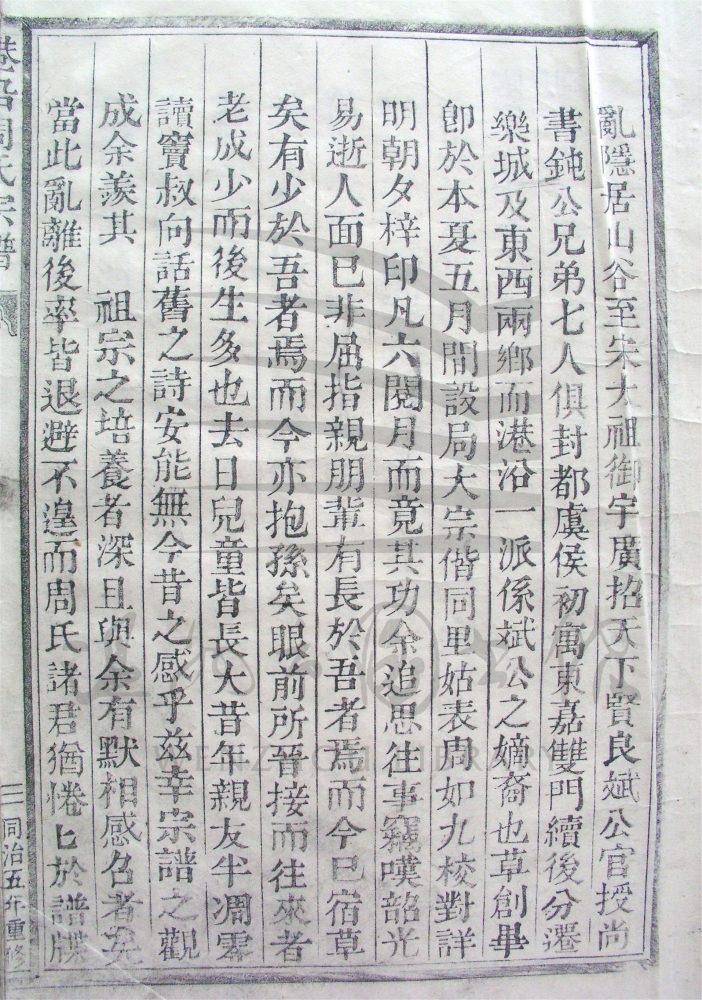 亂隱居山谷至宋太祖御宇廣招天下賢良斌公官授尚
書鈍公兄弟七人俱封都虞侯初寓東嘉雙門續後分遷
樂城及東西兩鄉而港沿一派係斌公之嫡裔也草創畢
卽於本夏五月間設局大宗偕同里姑表周如九校對詳
明朝夕梓印凡六閱月而竟其功余追思往事竊嘆韶光
易逝人面已非屈指親朋輩有長於吾者焉而今已宿草
矣有少於吾者焉而今亦抱孫矣眼前所晉接而往來者
老成少而後生多也去日兒童皆長大昔年親友半凋零
讀竇叔向話舊之詩安能無今昔之感乎茲幸宗譜之觀
成余羨其 祖宗之培養者深且與余有默相感召者矣
當此亂離後率皆退避不遑而周氏諸君猶惓匕於譜牒
港沿周氏宗譜
三 同治五年重修
WENZHOU LIBRARY